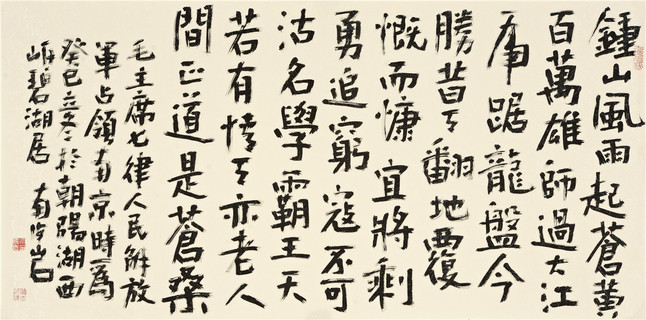 鍾山風雨起蒼黄
百萬雄師過大江
虎踞龍盤今
勝昔天翻地覆
慨而慷宜將剩
勇追窮寇不可
沽名學霸王天
若有情天亦老人
間正道是蒼桑
毛主席七律人民解放
軍占領南京時爲
癸巳立冬於朝陽湖西
碧湖居 南